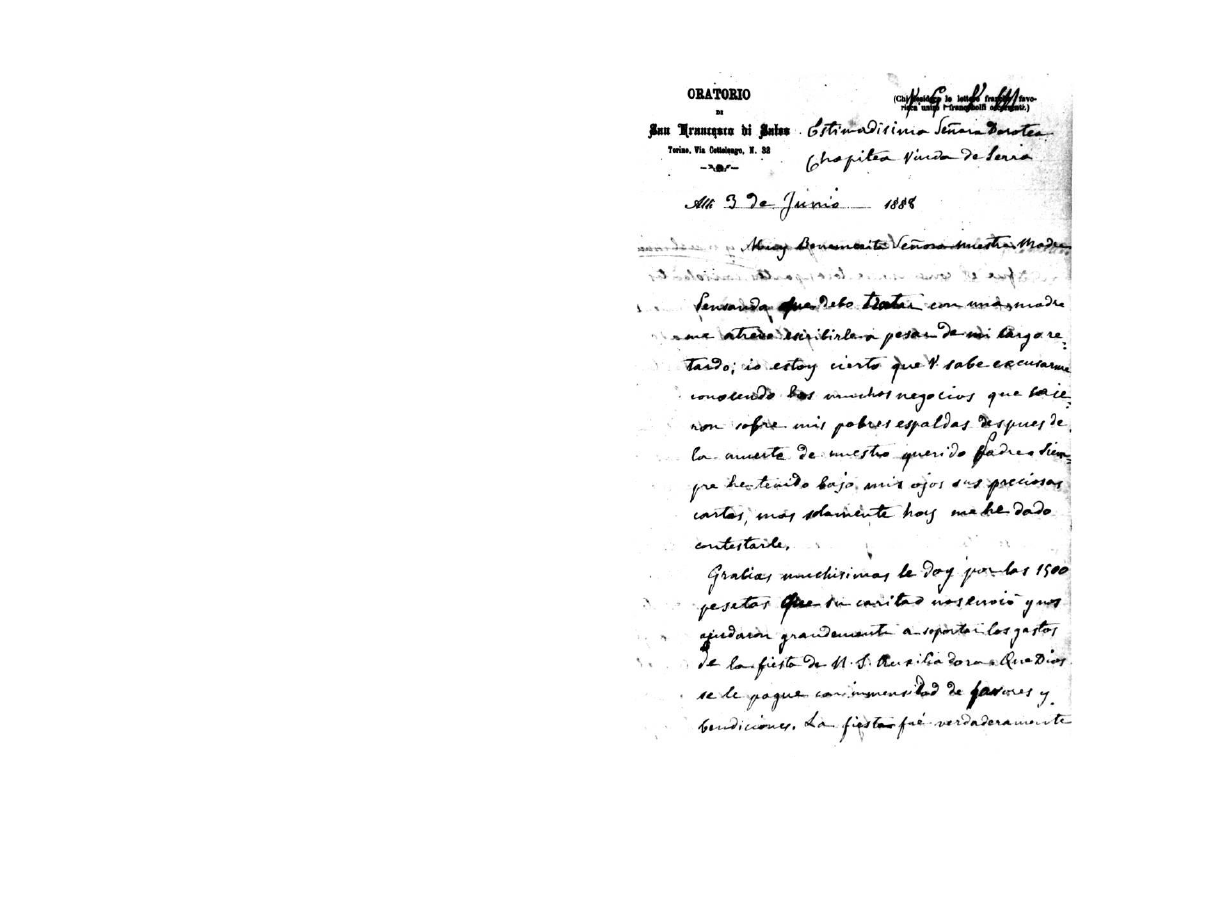 ORATORIO
DI
San Francesco di Sales
Torino, Via Cottolengo, N. 32
(Chi desidera le lettere franche favo-
risca unire i francobolli occorrenti.)
Estimadisima Señora Dorotea
Chopitea Viuda de Serra
Alli 3 de Junio 1888
Muy Benemerita Señora nuestra Madre
Pensando que debo tratar con una madre
me atrevo escribirle a pesar de mi largo re=
tardo; io estoy cierto que V. sabe excusarme
conosendo los muchos negocios que caie=
ron sobre mis pobres espaldas despues de
la muerte de nuestro querido Padre. Siem=
pre he tenido bajo mis ojos sus preciosas
cartas, mas solamente hoy me he dado
contestarle.
Gratias muchisimas le doy por las 1500
pesetas que su caritad nos envió y nos
ajudaron grandemente a soportar los gastos
de la fiesta de N. S. Ausiliadora. Que Dios
se le pague con immensitad de favores y
bendiciones. La fiesta fué verdaderamente